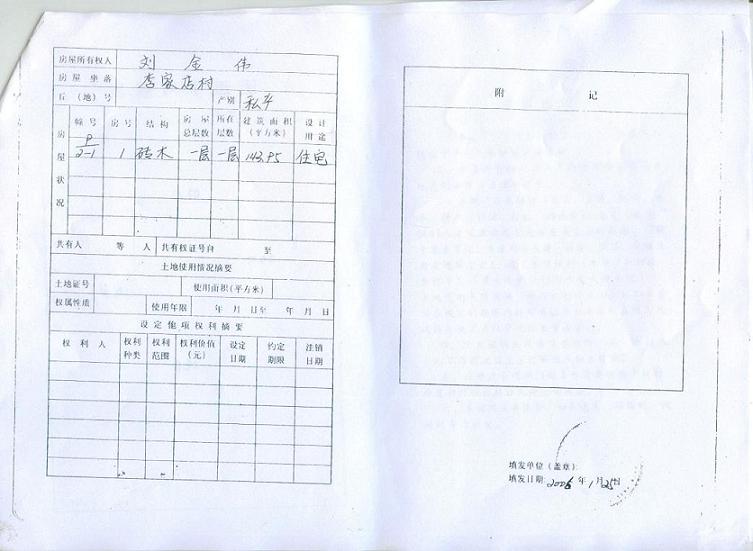 房屋所有权人 刘金伟
房屋坐落 李家店村
丘（地）号 产别 私产
房屋状况
幢号 房号 结构 房屋总层数 所在层数 建筑面积（平方米） 设计用途
2-1 1 砖木 一层 一层 143.95 住宅
共有人 等 人 共有权证号自 至
土地使用情况摘要
土地证号 使用面积（平方米）
权属性质 使用年限 年 月 日至 年 月 日
设定他项权利摘要
权利人 权利种类 权利范围 权利价值（元） 设定日期 约定期限 注销日期
附 记
填发单位（盖章）：
填发日期： 年 1 月 25 日